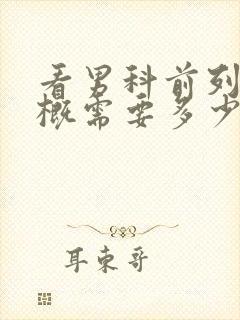 看男科前列
概需要多少
耳東哥